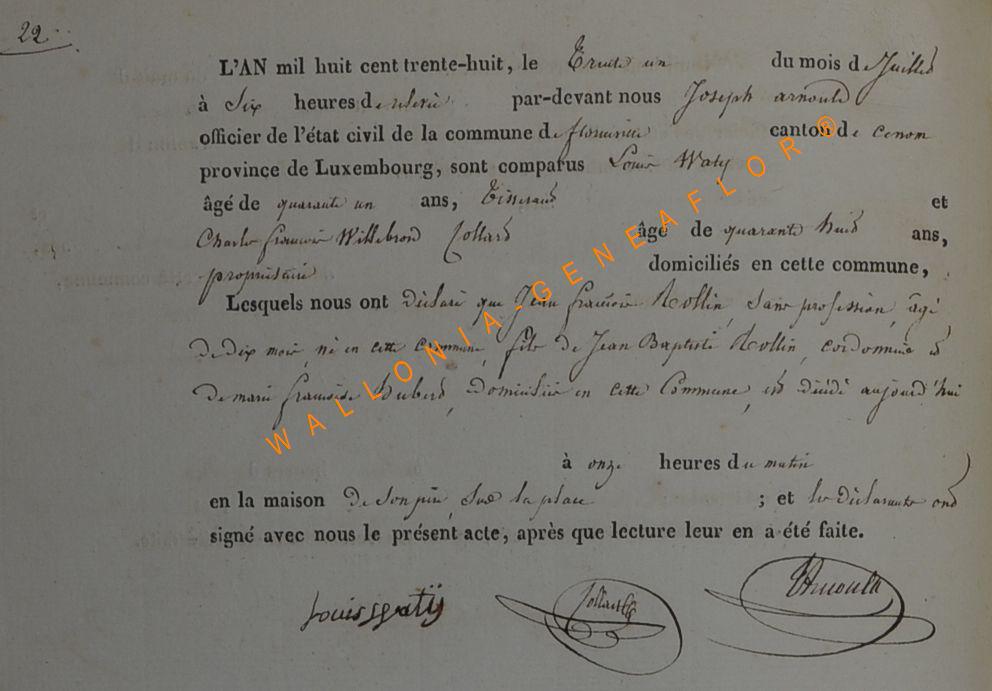 22
L'AN mil huit cent trente-huit, le Trente un du mois de Juillet
à Six heures de relevée par-devant nous Joseph arnould
officier de l'état civil de la commune de florenville canton de
province de Luxembourg, sont comparus Louis Waty
âgé de quarante un ans, Tisserand et
Charles françois Willebrord Collard âgé de quarante huit ans,
propriétaire domiciliés en cette commune,
Lesquels nous ont déclaré que Jean françois Rollin, Sans profession, âgé
de dix mois, né en cette Commune, fils de Jean Baptiste Rollin, cordonnier et
de marie françoise hubert, domiciliés en cette Commune, est décédé aujourd'hui
à onze heures du matin
en la maison de Son père, Sur la place ; et les déclarants ont
signé avec nous le présent acte, après que lecture leur en a été faite.
Louis Watÿ Collard Arnould
WALLONIA-GENEAFLOR®